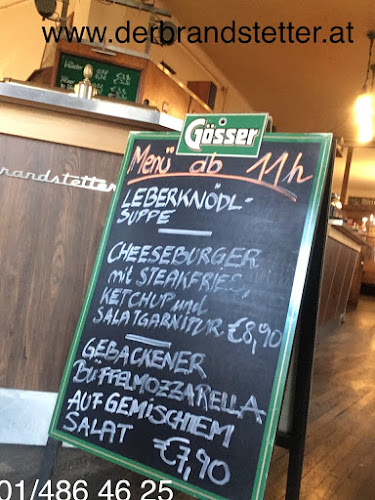 www.derbrandstetter.at
Gösser
Menü ab 11h
LEBERKNÖDL-
SUPPE
CHEESEBURGER
mit STEAKFRIES,
KETCHUP und
SALATGARNITUR €8,90
GEBACKENER
BÜFFELMOZZARELLA
AUF GEMISCHTEM
SALAT €7,90
randstetter
01/486 46 25